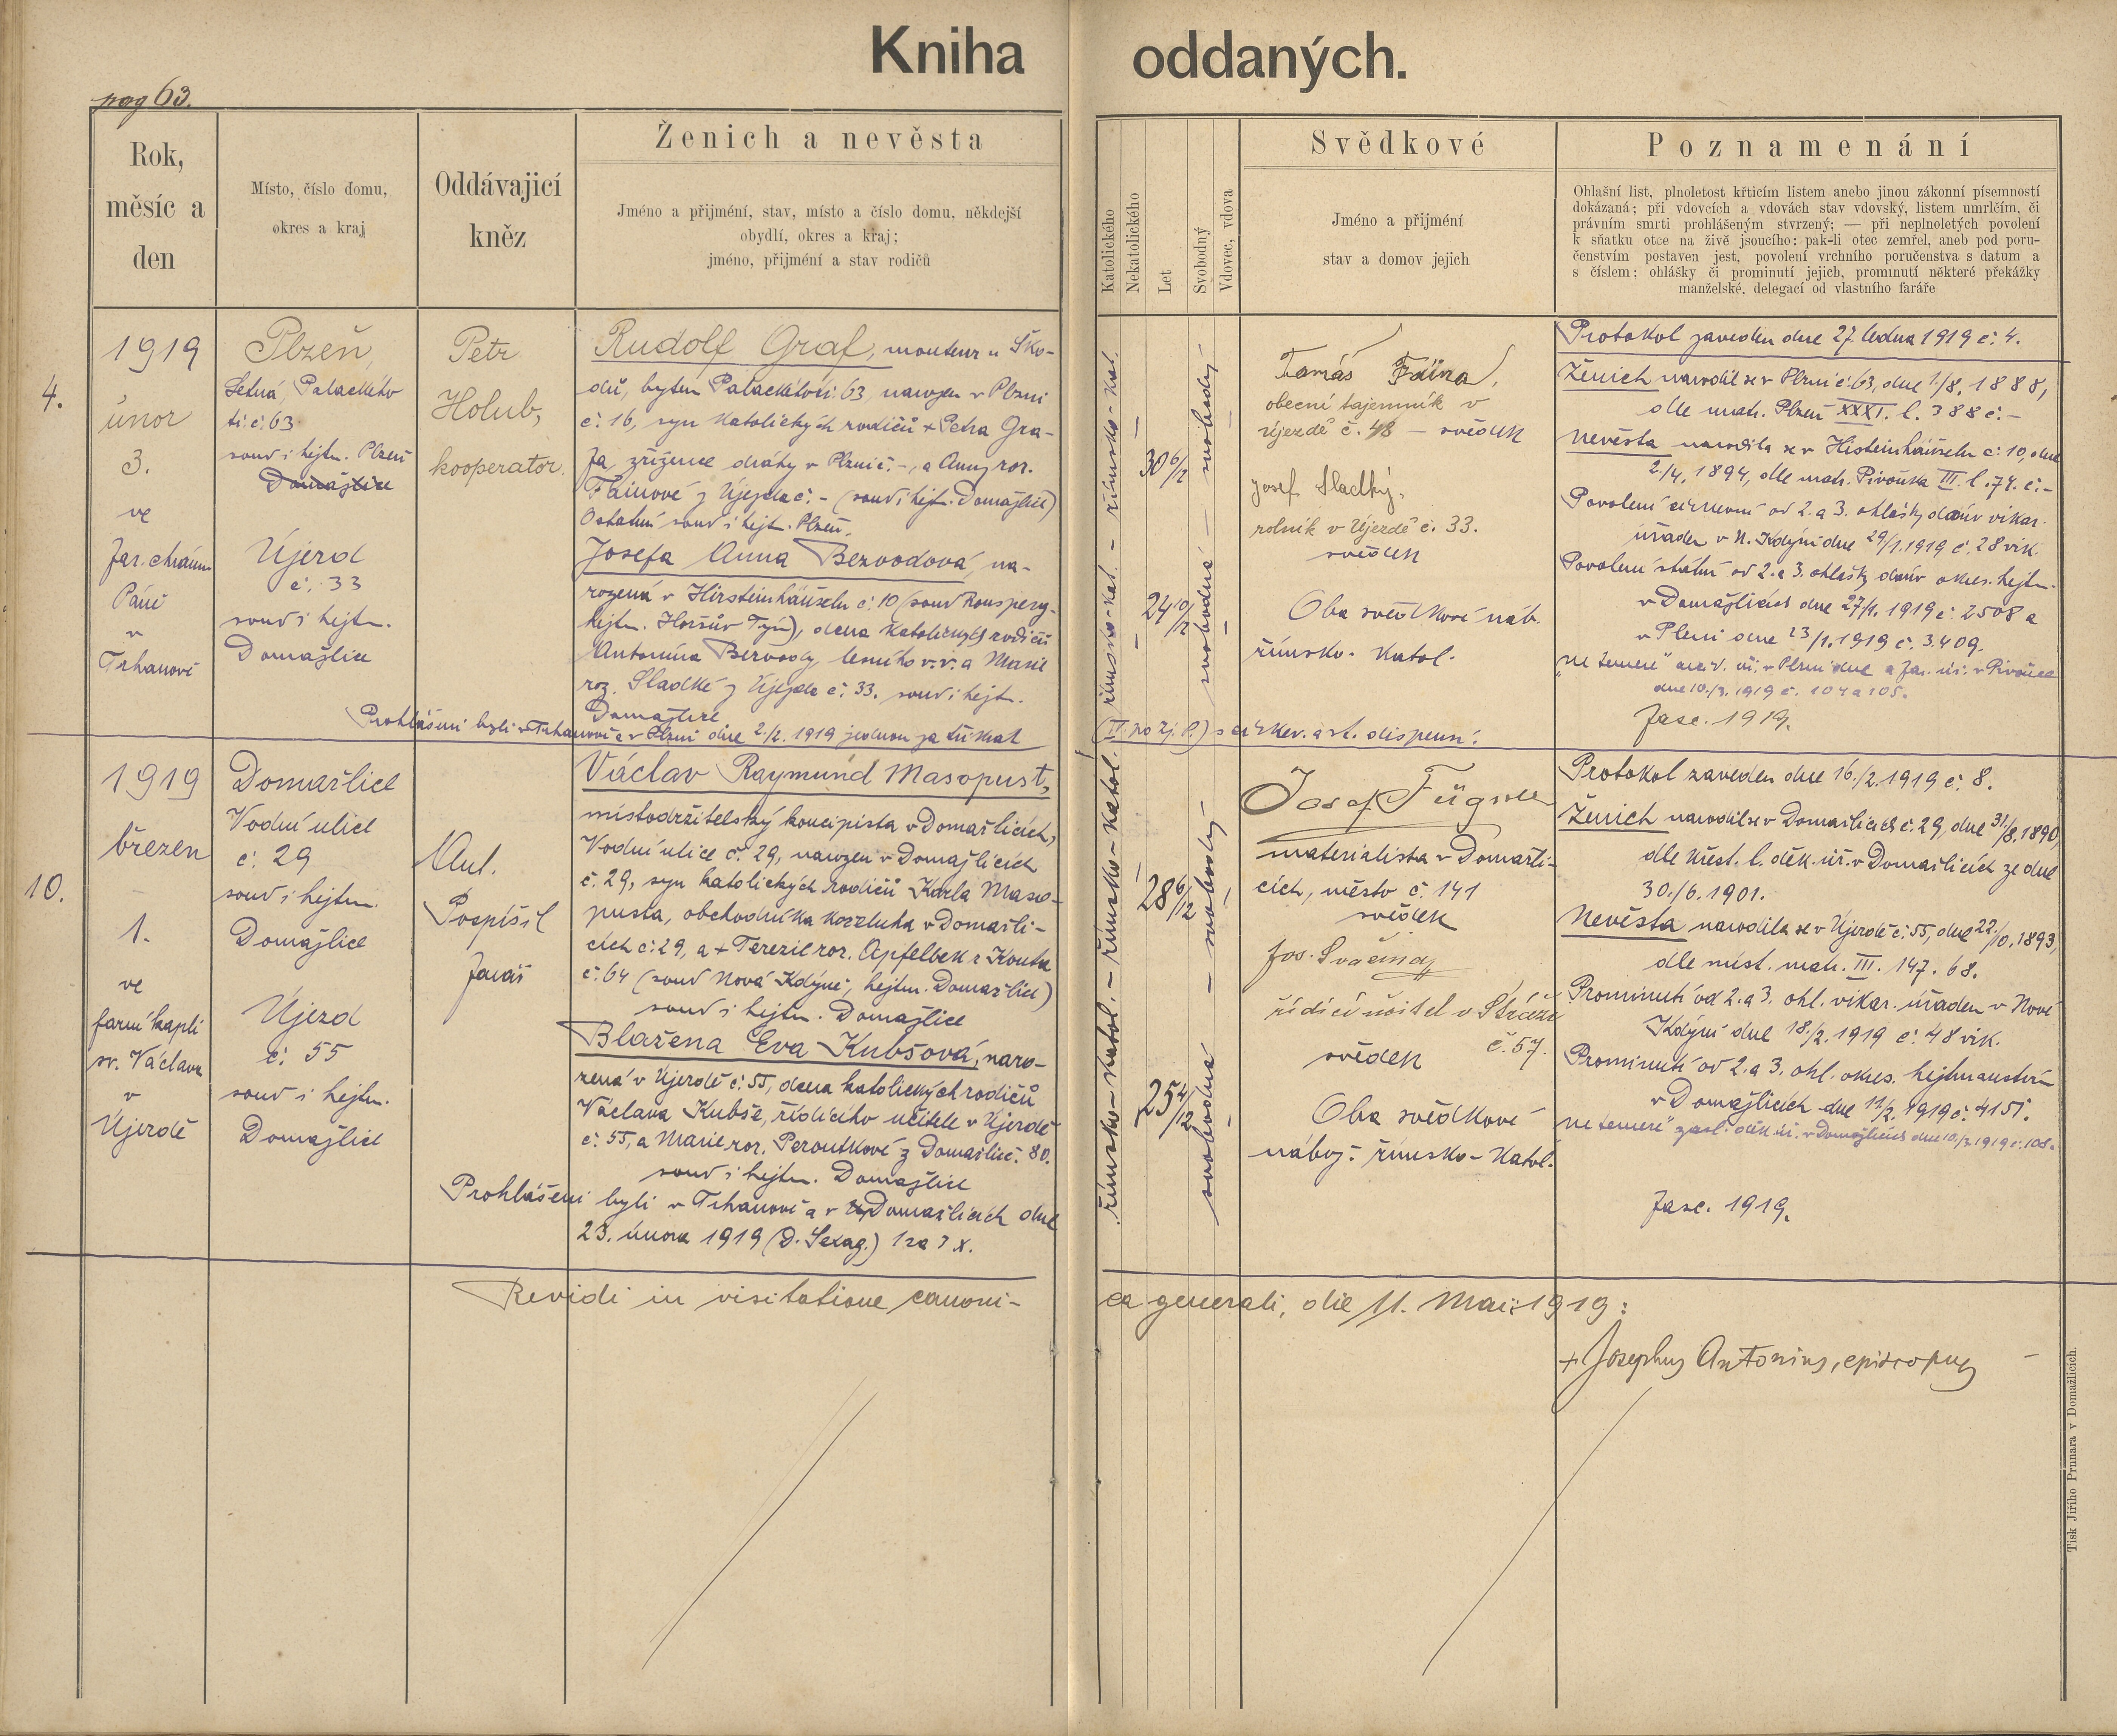 Kniha oddaných.
pag 63.
Rok,
měsíc a
den
Místo, číslo domu,
okres a kraj
Oddávající
kněz
Ženich a nevěsta
Jméno a přijmení, stav, místo a číslo domu, někdejší
obydlí, okres a kraj;
jméno, přijmení a stav rodičů
Katolického
Nekatolického
Let
Svobodný
Vdovec, vdova
Svědkové
Jméno a přijmení
stav a domov jejich
Poznamenání
Ohlašní list, plnoletost křticím listem anebo jinou zákonní písemností
dokázaná; při vdovcích a vdovách stav vdovský, listem umrlčím, či
právním smrti prohlášeným stvrzený; — při neplnoletých povolení
k sňatku otce na živě jsoucího: pak-li otec zemřel, aneb pod poru-
čenstvím postaven jest, povolení vrchního poručenstva s datum a
s číslem; ohlášky či prominutí jejich, prominutí některé překážky
manželské, delegací od vlastního faráře
4.
1919
únor
3.
ve
far. chrámu
Páně
v
Trhanově
Plzeň,
Letná, Palackého
tř. č. 63
soud i hejtm. Plzeň
Domažlice
Újezd
č. 33
soud i hejtm.
Domažlice
Petr
Holub,
kooperator.
Rudolf Graf, monteur u Ško-
dů, bytem Palackého tř. 63, narozen v Plzni
č. 16, syn katolických rodičů + Petra Gra-
fa, zřízence dráhy v Plzni č. -, a Anny roz.
Fainové z Újezda č. - (soud i hejtm. Domažlice)
Ostatní soud i hejt. Plzeň.
Josefa Anna Bezvodová, na-
rozená v Hirsteinhäuseln č. 10 (soud Ronsperg,
hejtm. Horšův Týn), dcera katolických rodičů
Antonína Bezvody, lesního v. v. a Marie
roz. Sladké z Újezda č. 33. soud i hejt.
Domažlice
Prohlášeni byli v Trhanově a v Plzni dne 2./2. 1919 jednou za třikrát
(IV. po zj. P.) s církev. a st. dispensí.
římsko-kat. - římsko-kat.
30 6/12
24 10/12
svobodná - svobodný
Tomáš Faina,
obecní tajemník v
Újezdě č. 48 - svědek
Josef Sladký,
rolník v Újezdě č. 33.
svědek
Oba svědkové náb.
římsko-katol.
Protokol zaveden dne 27. ledna 1919 č. 4.
Ženich narodil se v Plzni č. 63, dne 1./8. 1888,
dle matr. Plzeň XXXI. l. 388 č. -
Nevěsta narodila se v Histeinhäuseln č. 10, dne
2./4. 1894, dle matr. Pivoňka III. l. 74. č. -
Povolení církevní od 2. a 3. ohlášky dáno vikar.
úřadem v N. Kdýni dne 29/1. 1919 č. 28 vik.
Povolení státní od 2. a 3. ohlášky dáno okres. hejtm.
v Domažlicích dne 27/1. 1919 č. 2508 a
v Plzni dne 23/1. 1919 č. 3409.
"ne temere" v Plzni dne a far. úř. v Pivoňce
dne 10./3. 1919 č. 104 a 105.
Fasc. 1919.
10.
1919
březen
1.
ve
farní kapli
sv. Václava
v
Újezdě
Domažlice
Vodní ulice
č. 29
soud i hejtm.
Domažlice
Újezd
č. 55
soud i hejtm.
Domažlice
Ant.
Pospíšil
farář
Václav Raymund Masopust,
místodržitelský koncipista v Domažlicích,
Vodní ulice č. 29, narozen v Domažlicích
č. 29, syn katolických rodičů Karla Maso-
pusta, obchodníka koželuha v Domažli-
cích č. 29, a + Terezie roz. Apfelbek z Kouta
č. 64 (soud Nová Kdýně, hejtm. Domažlice)
soud i hejtm. Domažlice
Blažena Eva Kubšová, naro-
zená v Újezdě č. 55, dcera katolických rodičů
Václava Kubše, řídícího učitele v Újezdě
č. 55, a Marie roz. Peroutkové z Domažlic č. 80.
soud i hejtm. Domažlice
Prohlášeni byli v Trhanově a v Domažlicích dne
23. února 1919 (D. Sexag.) 1 za 3 x.
římsko-katol. - římsko-katol.
28 6/12
25 4/12
svobodná - svobodný
Josef Fügner
materialista v Domažli-
cích, město č. 141
svědek
Jos. Svačina
řídící učitel v Stráži
č. 57.
svědek
Oba svědkové
nábož. římsko-katol.
Protokol zaveden dne 16./2. 1919 č. 8.
Ženich narodil se v Domažlicích č. 29, dne 31./8. 1890,
dle křest. l. děk. úř. v Domažlicích ze dne
30./6. 1901.
Nevěsta narodila se v Újezdě č. 55, dne 22./10. 1893,
dle míst. matr. III. 147. 68.
Prominutí od 2. a 3. ohl. vikar. úřadem v Nové
Kdýni dne 18./2. 1919 č. 48 vik.
Prominutí od 2. a 3. ohl. okres. hejtmanstvím
v Domažlicích dne 11/2. 1919 č. 4151.
"ne temere" zasl. děk. úř. v Domažlicích dne 10./3. 1919 č. 108.
Fasc. 1919.
Revidi in visitatione canoni-
ca generali, die 11. Maii 1919:
+ Josephus Antonius, episcopus
Tisk Jiřího Prunara v Domažlicích.